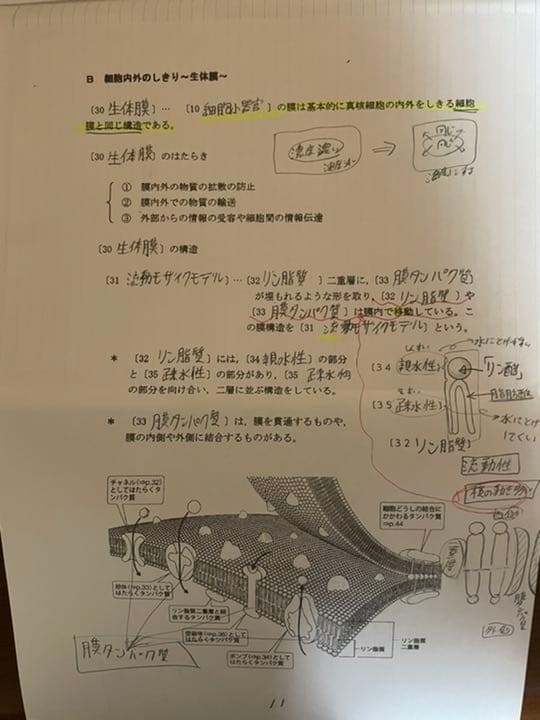 B 細胞内外のしきり～生体膜～
〔30 生体膜〕… 〔10 細胞小器官〕の膜は基本的に真核細胞の内外をしきる細胞
膜と同じ構造である。
〔30 生体膜〕のはたらき
濃度濃い
⇒
① 膜内外の物質の拡散の防止
② 膜内外での物質の輸送
③ 外部からの情報の受容や細胞間の情報伝達
〔30 生体膜〕の構造
〔31 流動モザイクモデル〕…〔32 リン脂質〕二重層に，〔33 膜タンパク質〕
が埋もれるような形を取り，〔32 リン脂質〕や
〔33 膜タンパク質〕は膜内で移動している。こ
の膜構造を〔31 流動モザイクモデル〕という。
* 〔32 リン脂質〕には，〔34 親水性〕の部分
と〔35 疎水性〕の部分があり，〔35 疎水性〕
の部分を向け合い，二層に並ぶ構造をしている。
〔34 親水性〕
「リン酸」
〔35 疎水性〕
脂肪酸
水にとけ
にくい
〔32 リン脂質〕
* 〔33 膜タンパク質〕は，膜を貫通するものや，
膜の内側や外側に結合するものがある。
流動性
チャネル(⇒p.32)
としてはたらくタン
パク質
細胞どうしの結合に
かかわるタンパク質
⇒p.44
担体(⇒p.33)として
はたらくタンパク質
リン脂質二重層と結
合するタンパク質
受容体(⇒p.36)として
はたらくタンパク質
ポンプ(⇒p.34)として
はたらくタンパク質
リン脂質
リン脂質
二重層
膜タンパク質
11